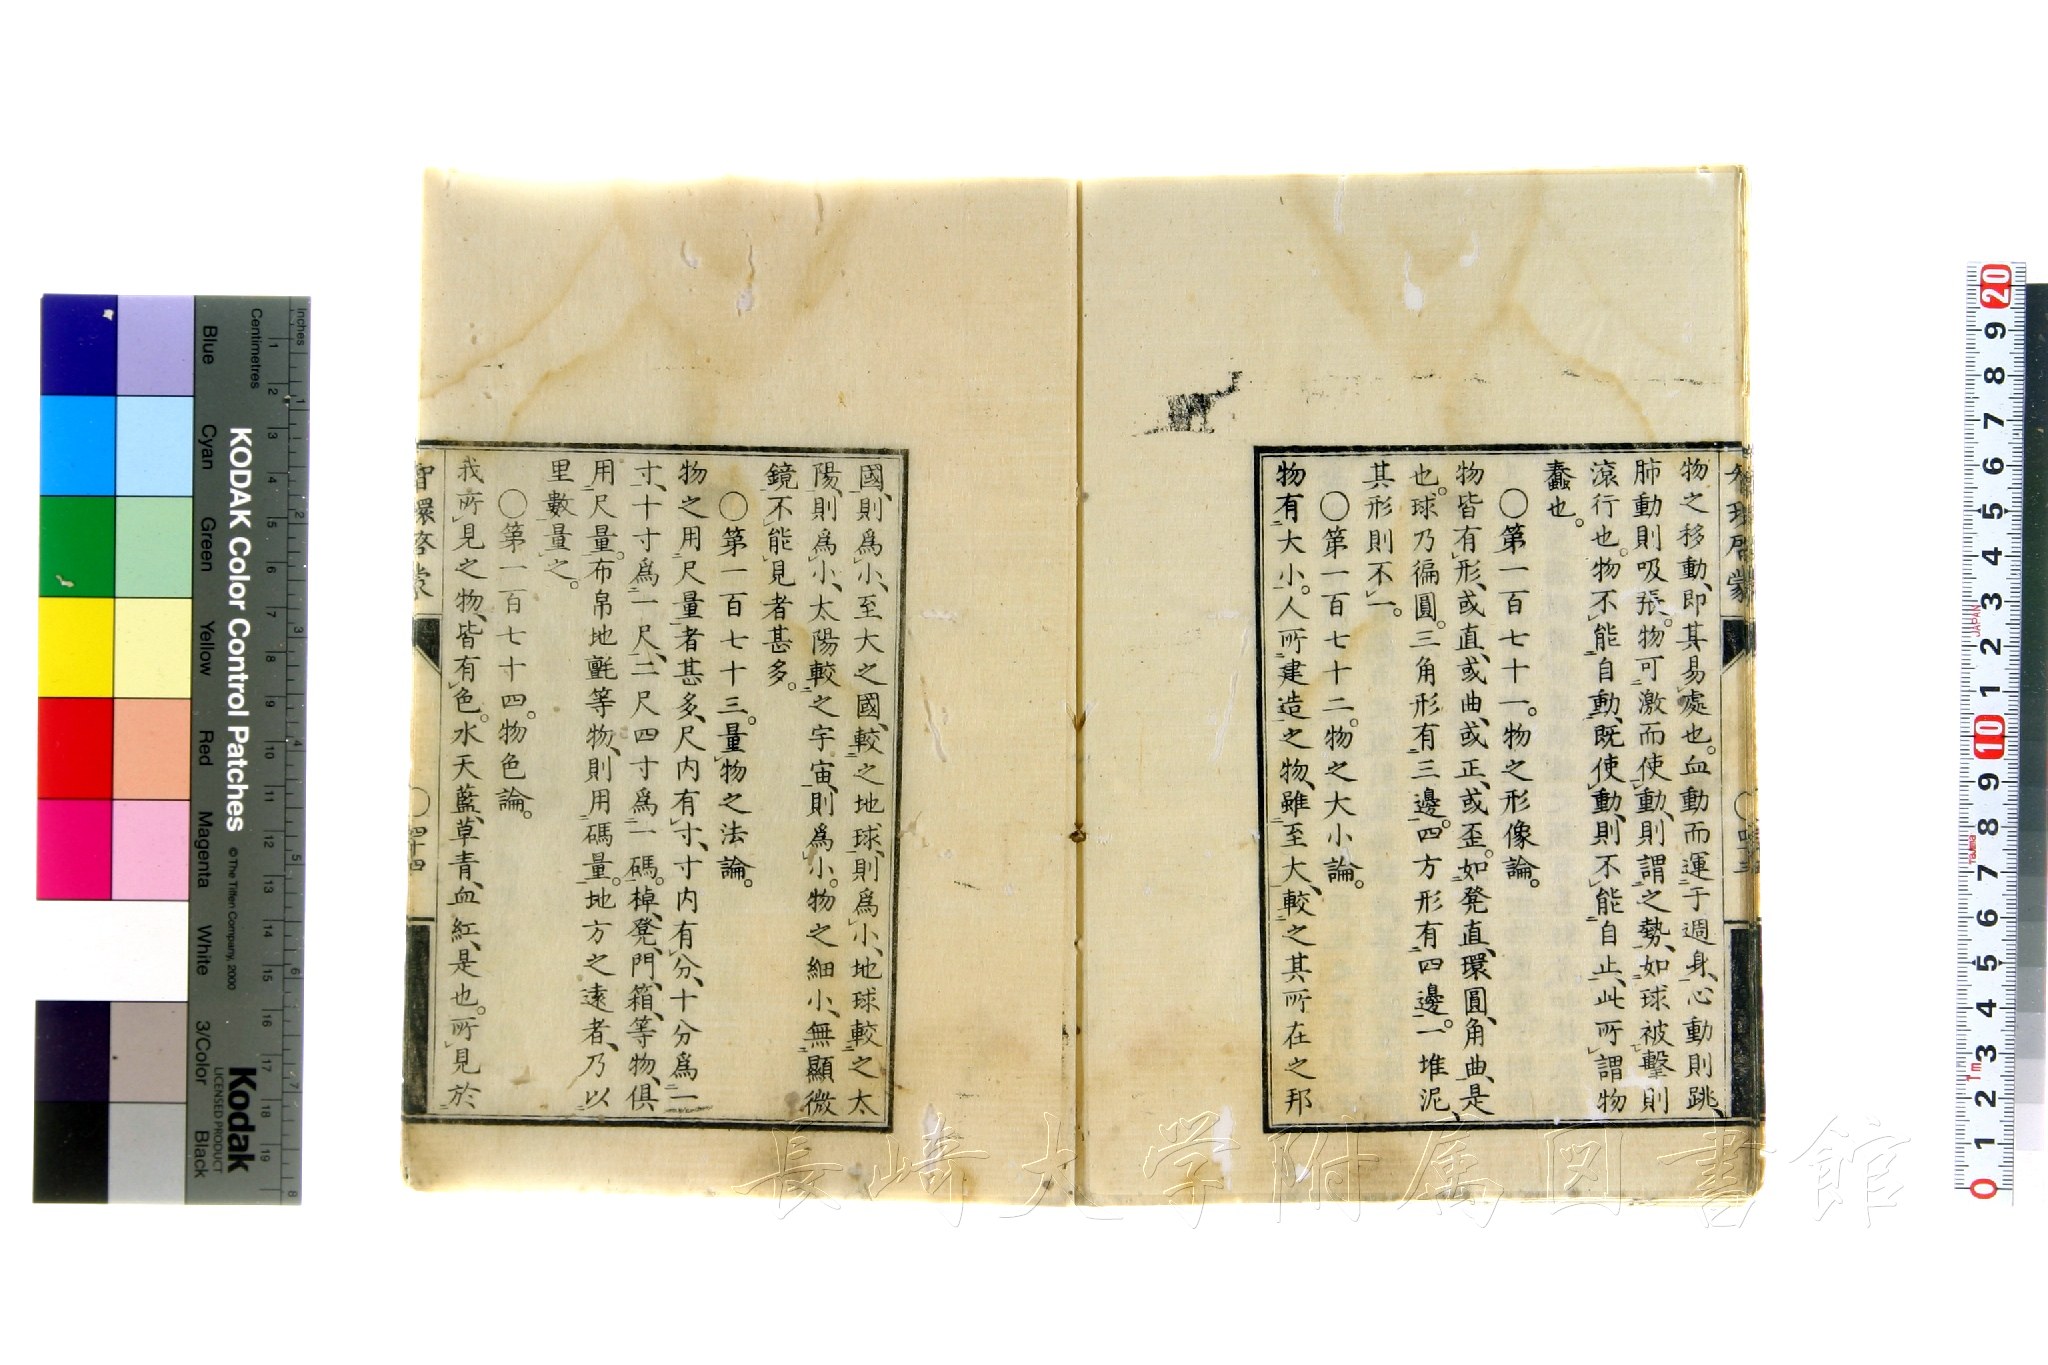 智環啓蒙
〇四十三
物之移動、即其易處也。血動而運于週身、心動則跳、
肺動則吸張。物可激而使動、則謂之勢、如球被擊則
滾行也。物不能自動、既使動、則不能自止、此所謂物
蠢也。
〇第一百七十一。物之形像論。
物皆有形、或直、或曲、或正、或歪。如凳直、環圓、角曲、是
也。球乃徧圓。三角形有三邊。四方形有四邊。一堆泥
其形則不一。
〇第一百七十二。物之大小論。
物有大小。人所建造之物、雖至大、較之其所在之邦
國、則爲小、至大之國、較之地球、則爲小、地球較之太
陽、則爲小、太陽較之宇宙、則爲小。物之細小、無顯微
鏡不能見者甚多。
〇第一百七十三。量物之法論。
物之用尺量者甚多、尺内有寸、寸内有分、十分爲一
寸、十寸爲一尺、二尺四寸爲一碼。棹、凳、門、箱、等物、俱
用尺量。布帛地氈等物、則用碼量。地方之遠者、乃以
里數量之。
〇第一百七十四。物色論。
我所見之物、皆有色。水天藍、草青、血紅、是也。所見於
智環啓蒙
〇四十四
長崎大学附属図書館
KODAK Color Control Patches
© The Tiffen Company, 2000
Kodak
LICENSED PRODUCT
Inches
1 2 3 4 5 6 7 8
Centimetres
1 2 3 4 5 6 7 8 9 10 11 12 13 14 15 16 17 18 19
Blue
Cyan
Green
Yellow
Red
Magenta
White
3/Color
Black
20 9 8 7 6 5 4 3 2 1 10 9 8 7 6 5 4 3 2 1 0
JAPAN
Tajima
1m